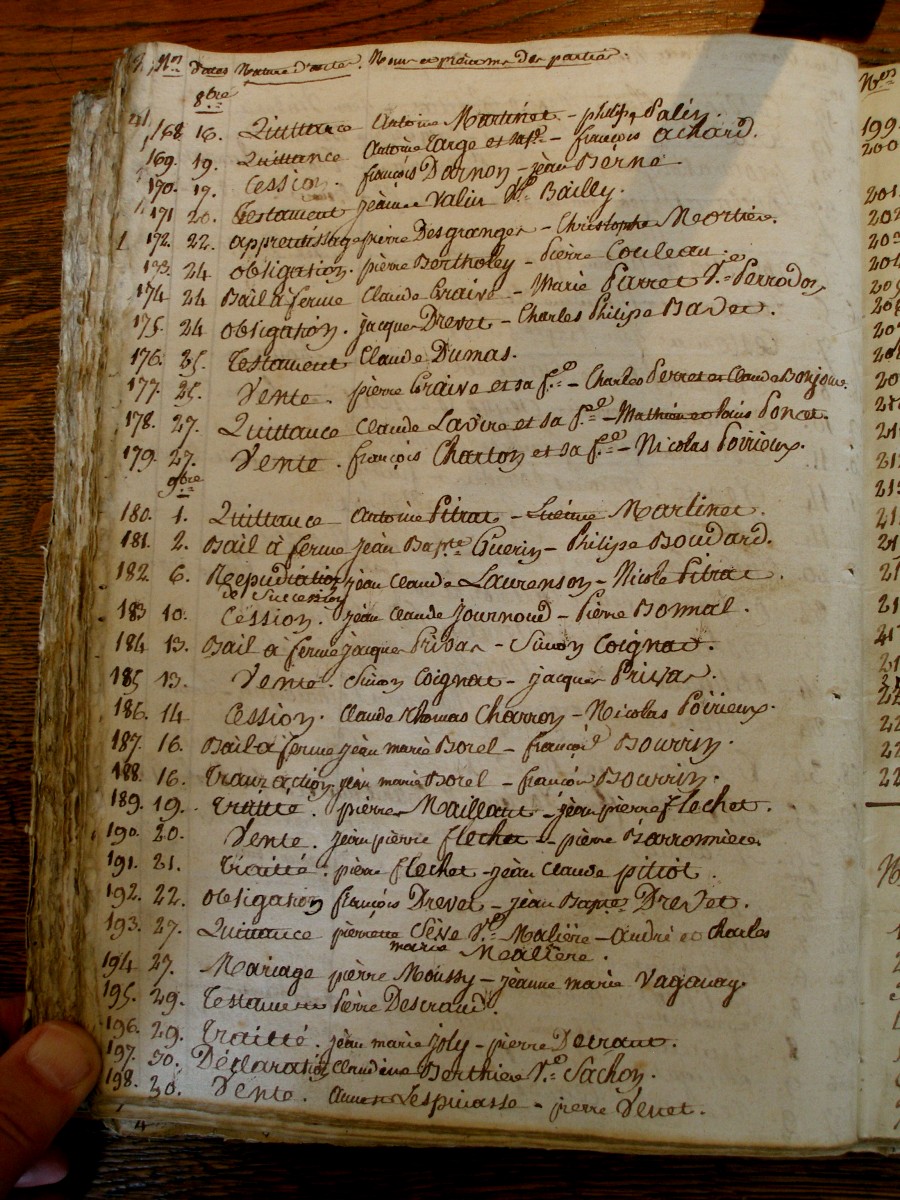 Nos Dates Nature d'actes. Noms et prénoms des parties.
8bre
168 16. Quittance Antoine Martinet - philipe Palin.
169. 19. Quittance Antoine Targe et sa fe. - françois achard.
170. 19. Cession. françois Darnon - jean Berne
171 20. Testament jeanne Valin Ve. Bailly.
172. 22. apprentissage pierre Desgranges - Christophe Mortier.
173. 24 obligation. pierre Bertholey - Pierre Couleau.
174 24 Bail à ferme Claude Craive - Marie Parret Ve. Perrodon
175. 24 obligation. jacques Drevet - Charles Philipe Badet.
176. 25. Testament Claude Dumas.
177. 25. Vente. pierre Craive et sa fe. - Charles Perret et Claude Bonjour.
178. 27. Quittance Claude Lavire et sa fe. - Mathieu et Louis Poncet.
179. 27. Vente. françois Charton et sa fe. - Nicolas Poirieux.
9bre
180. 1. Quittance Antoine Pitrat - Martinet.
181. 2. Bail à ferme jean Bapte. Guerin - Philipe Boudard.
182. 6. Repudiation jean Claude Laurenson - Nicole Pitrat.
de Succession
183 10. Cession. jean Claude Journoud - Pierre Bonnal.
184 13. Bail à ferme jacques Privas - Simon Coignat.
185 13. Vente. Simon Coignat - jacques Privas.
186. 14 Cession. Claude Thomas Charron - Nicolas Poirieux.
187. 16. Bail à ferme jean marie Borel - françois Bourrin.
188. 16. Tranzaction. jean marie Borel - françois Bourrin.
189. 19. traitté. pierre Maillant - jean pierre flechet.
190. 20. Vente. jean pierre flechet - pierre Barronnier.
191. 21. Traitté. pierre flechet - jean Claude pitiot.
192. 22. obligation françois Drevet - jean Bapte. Drevet.
193. 27. Quittance pierrette Séve Ve. Maliére - andré et charles
marie Mealiere.
194 27. Mariage pierre Moussy - jeanne marie Vaganay.
195. 29. Testament Pierre Descraud.
196. 29. Traitté. jean marie joly - pierre Detraut.
197. 30. Déclaration Claudine Berthier Ve. Sachon.
198. 30. Vente. Lespinasse - pierre Venet.
Nos
199
200
201
202